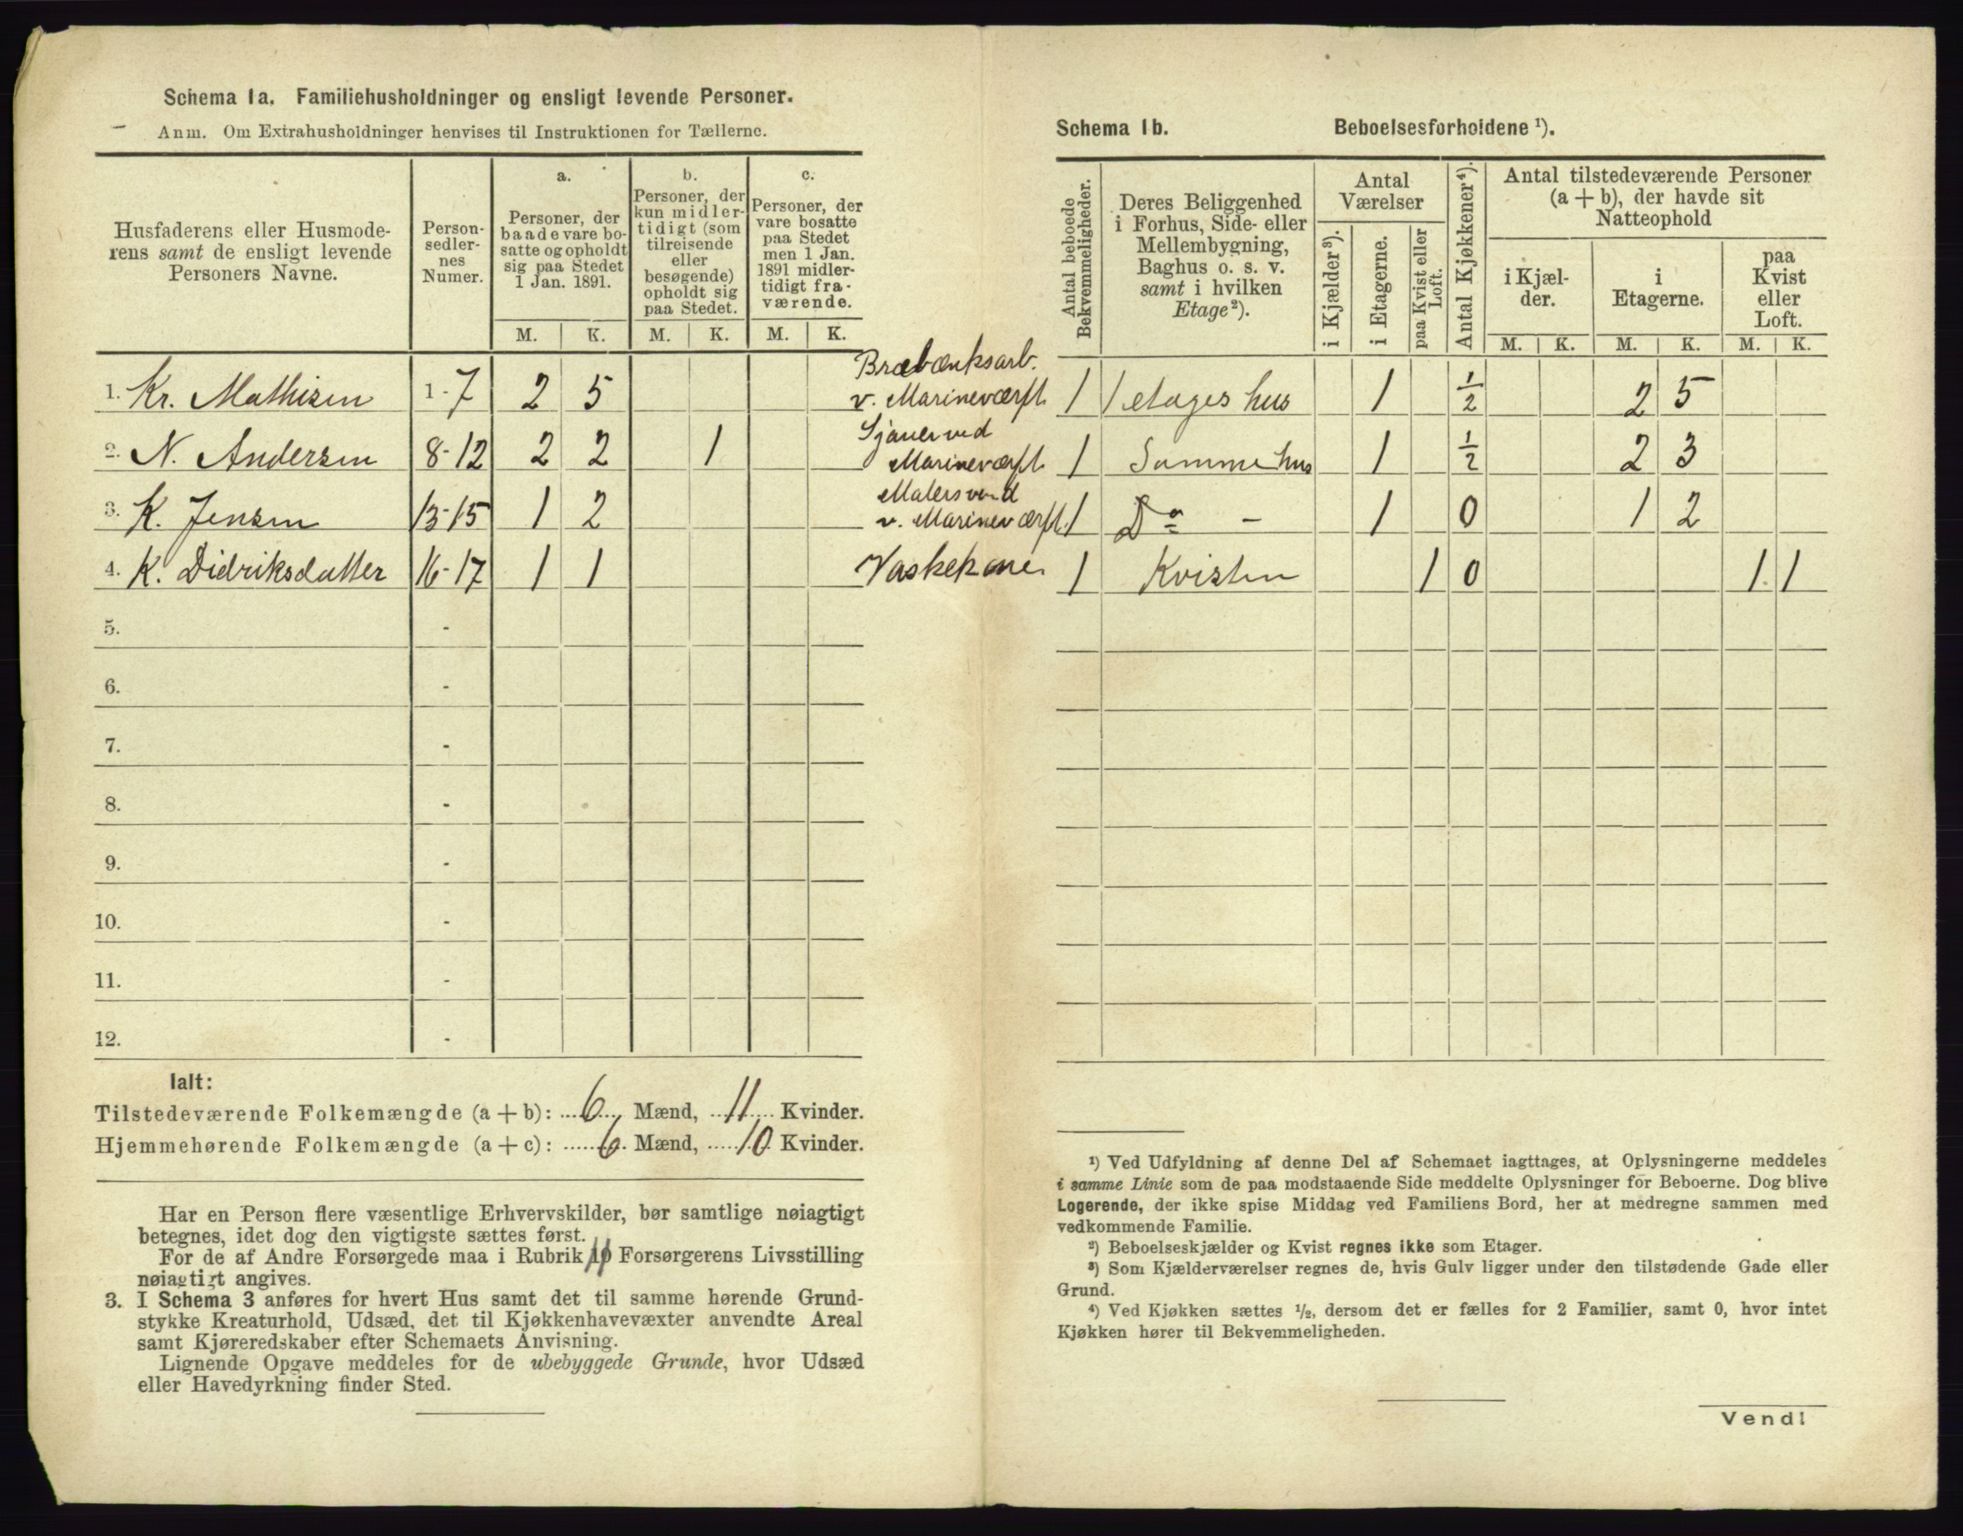 Schema 1a. Familiehusholdninger og ensligt levende Personer.
Anm. Om Extrahusholdninger henvises til Instruktionen for Tællerne.
Husfaderens eller Husmoderens samt de ensligt levende Personers Navne.
Personsedlernes Numer.
a. Personer, der baade vare bosatte og opholdt sig paa Stedet 1 Jan. 1891.
b. Personer, der kun midlertidigt (som tilreisende eller besøgende) opholdt sig paa Stedet.
c. Personer, der vare bosatte paa Stedet men 1 Jan. 1891 midlertidigt fraværende.
M. K. M. K. M. K.
1. Kr. Mathisen 1-7 2 5 Bræbænksarb. v. Marineværft.
2. N. Andersen 8-12 2 2 1 Sjauer ved Marineværft.
3. K. Jensen 13-15 1 2 Malersvend v. Marineværft.
4. K. Didriksdatter 16-17 1 1 Vaskekone.
5. -
6. -
7. -
8. -
9. -
10. -
11. -
12. -
Ialt:
Tilstedeværende Folkemængde (a + b): 6 Mænd, 11 Kvinder.
Hjemmehørende Folkemængde (a + c): 6 Mænd, 10 Kvinder.
Har en Person flere væsentlige Erhvervskilder, bør samtlige nøiagtigt
betegnes, idet dog den vigtigste sættes først.
For de af Andre Forsørgede maa i Rubrik 11 Forsørgerens Livsstilling
nøiagtigt angives.
3. I Schema 3 anføres for hvert Hus samt det til samme hørende Grund-
stykke Kreaturhold, Udsæd, det til Kjøkkenhavevæxter anvendte Areal
samt Kjøreredskaber efter Schemaets Anvisning.
Lignende Opgave meddeles for de ubebyggede Grunde, hvor Udsæd
eller Havedyrkning finder Sted.
Schema 1b. Beboelsesforholdene ¹).
Antal beboede Bekvemmeligheder.
Deres Beliggenhed i Forhus, Side- eller Mellembygning, Baghus o. s. v. samt i hvilken Etage ²).
Antal Værelser
i Kjælder ³).
i Etagerne.
paa Kvist eller Loft.
Antal Kjøkkener ⁴).
Antal tilstedeværende Personer (a + b), der havde sit Natteophold
i Kjælder.
i Etagerne.
paa Kvist eller Loft.
M. K. M. K. M. K.
1 1 etages hus 1 ½ 2 5
1 Samme hus 1 ½ 2 3
1 Do - 1 0 1 2
1 Kvisten 1 0 1 1
¹) Ved Udfyldning af denne Del af Schemaet iagttages, at Oplysningerne meddeles
i samme Linie som de paa modstaaende Side meddelte Oplysninger for Beboerne. Dog blive
Logerende, der ikke spise Middag ved Familiens Bord, her at medregne sammen med
vedkommende Familie.
²) Beboelseskjælder og Kvist regnes ikke som Etager.
³) Som Kjælderværelser regnes de, hvis Gulv ligger under den tilstødende Gade eller
Grund.
⁴) Ved Kjøkken sættes ½, dersom det er fælles for 2 Familier, samt 0, hvor intet
Kjøkken hører til Bekvemmeligheden.
Vend!